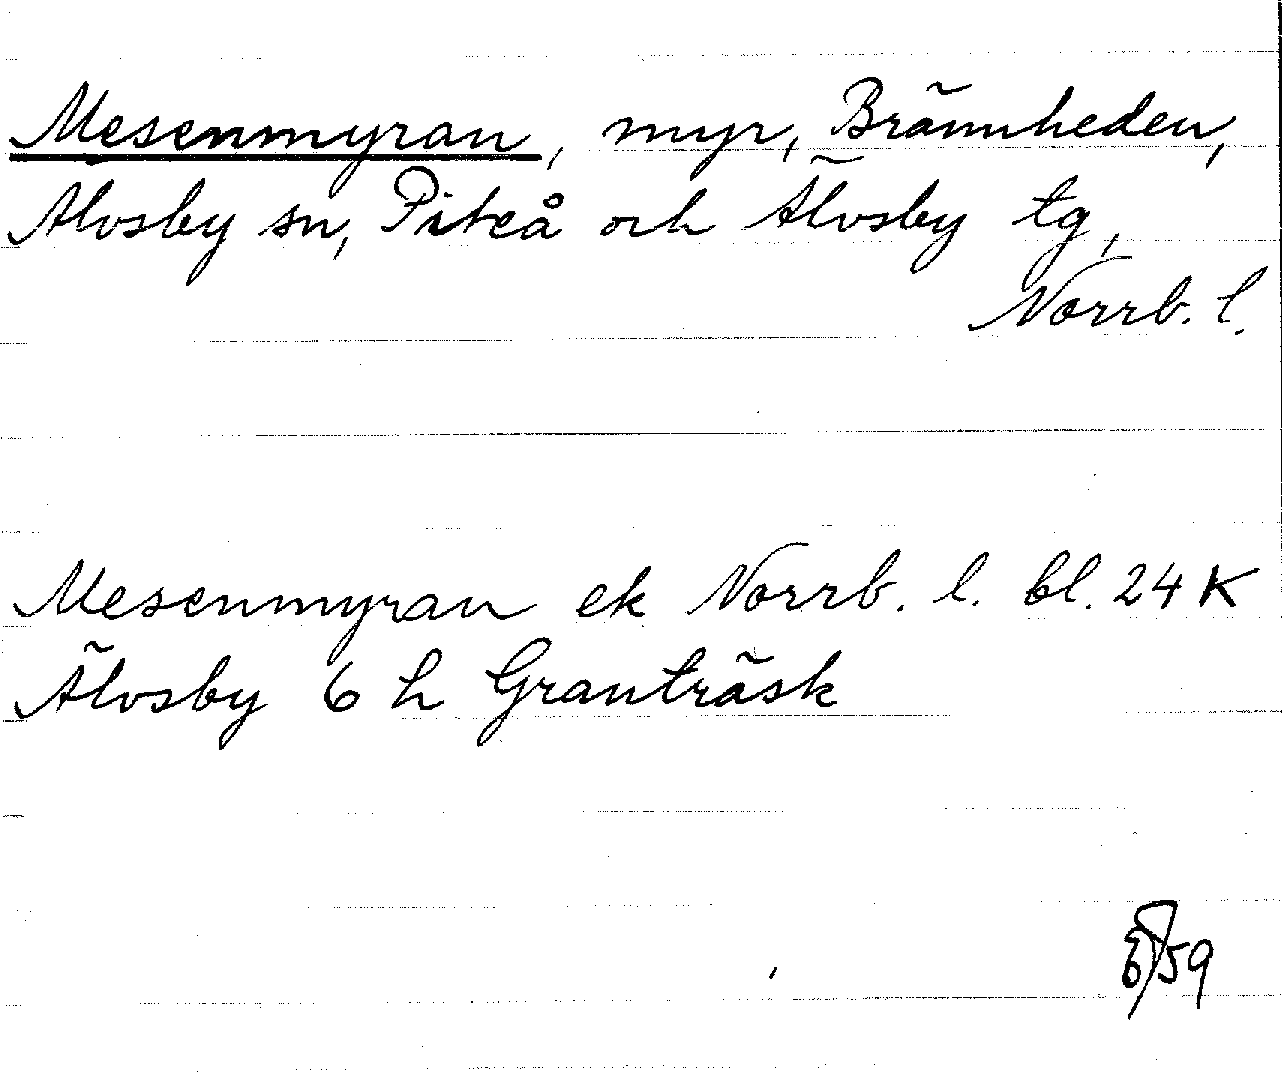 Mesenmyran, myr, Brännheden,
Älvsby sn, Piteå och Älvsby tg,
Norrb. l.
Mesenmyran ek Norrb. l. bl. 24 K
Älvsby 6 h Granträsk
59